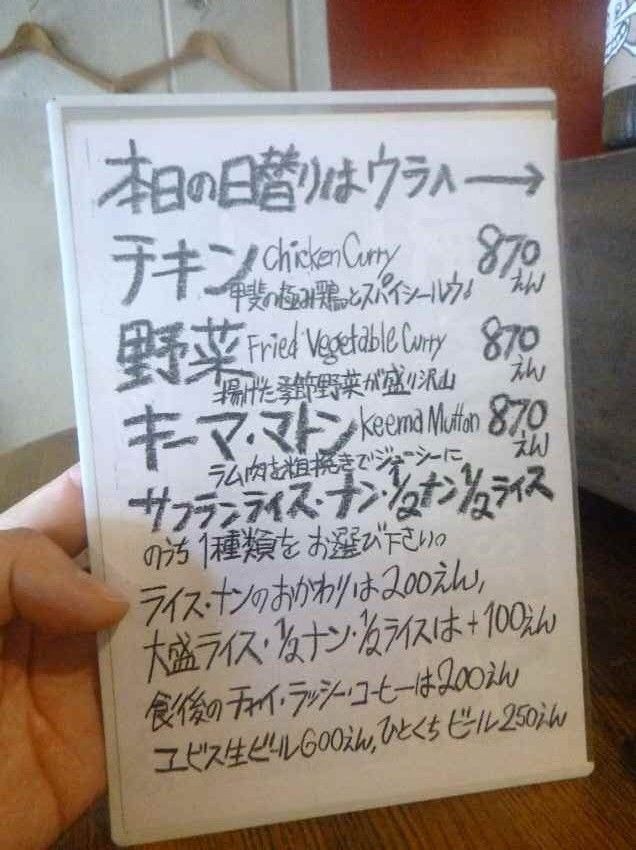 本日の日替りはウラへ→
チキン Chicken Curry 870えん
甲斐の極み鶏とスパイシールウ♪
野菜 Fried Vegetable Curry 870えん
揚げた季節野菜が盛り沢山
キーマ・マトン Keema Mutton 870えん
ラム肉を粗挽きでジューシーに
サフランライス・ナン・1/2ナン1/2ライス
のうち1種類をお選び下さい。
ライス・ナンのおかわりは200えん,
大盛ライス・1/2ナン・1/2ライスは+100えん
食後のチャイ・ラッシー・コーヒーは200えん
ヱビス生ビール600えん,ひとくちビール250えん